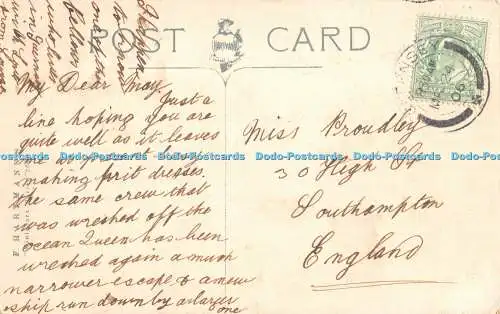 POST CARD
HARTMANN
My Dear May.
Just a
line hoping you are
quite well as it leaves
me at present. busy
making print dresses.
the same crew that
was wrecked off the
ocean Queen has been
wrecked again a much
narrower escape, & a new
ship run down by a larger
one
Miss Proudley
30 High St
Southampton
England
with Love
from Louise
F. HARTMANN
Dodo-Postcards Dodo-Postcards Dodo-Postcards Dodo-Postcards Dodo-Postcards Dodo-Postcards